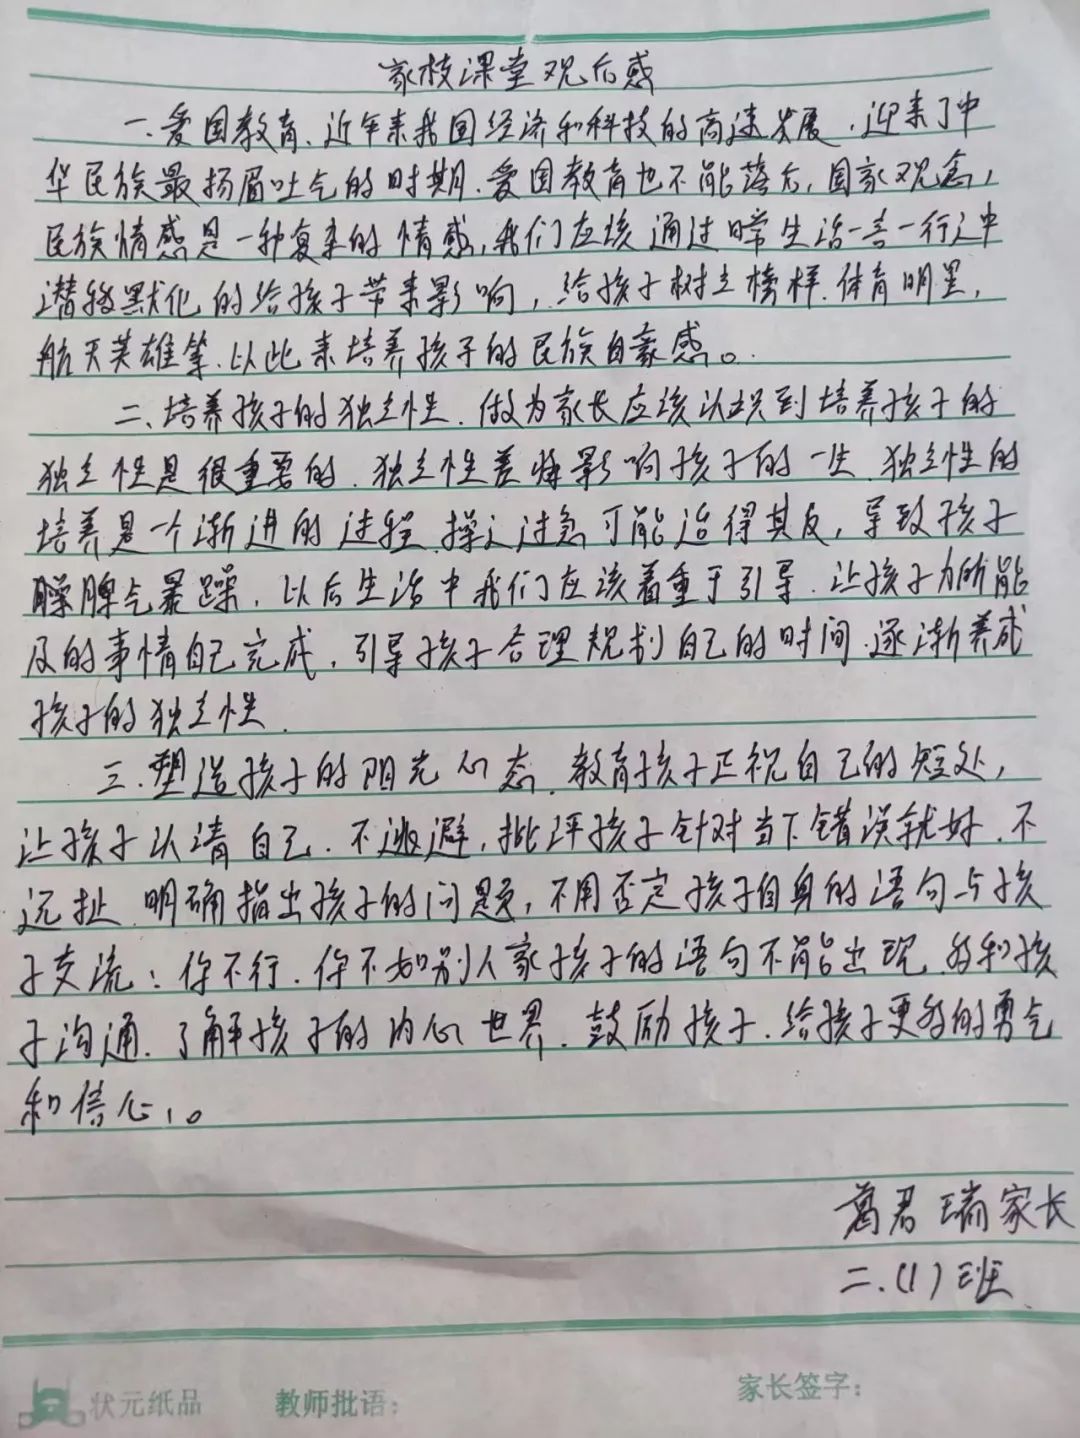 家校课堂观后感
一、爱国教育、近年来我国经济和科技的高速发展,迎来了中
华民族最扬眉吐气的时期.爱国教育也不能落后,国家观念,
民族情感是一种复杂的情感,我们应该通过日常生活一言一行之中
潜移默化的给孩子带来影响,给孩子树立榜样.体育明星,
航天英雄等.以此来培养孩子的民族自豪感。
二、培养孩子的独立性.做为家长应该认识到培养孩子的
独立性是很重要的.独立性差将影响孩子的一生.独立性的
培养是一个渐进的过程 操之过急可能适得其反,导致孩子
脾气暴躁.以后生活中我们应该着重于引导.让孩子力所能
及的事情自己完成.引导孩子合理规划自己的时间.逐渐养成
孩子的独立性.
三.塑造孩子的阳光心态.教育孩子正视自己的短处,
让孩子认清自己.不逃避,批评孩子针对当下错误就好.不
远扯.明确指出孩子的问题,不用否定孩子自身的语句与孩
子交流:你不行.你不如别人家孩子的语句不能出现.多和孩
子沟通.了解孩子的内心世界.鼓励孩子.给孩子更多的勇气
和信心,。
葛君瑞家长
二.(1)班.
状元纸品 教师批语: 家长签字: